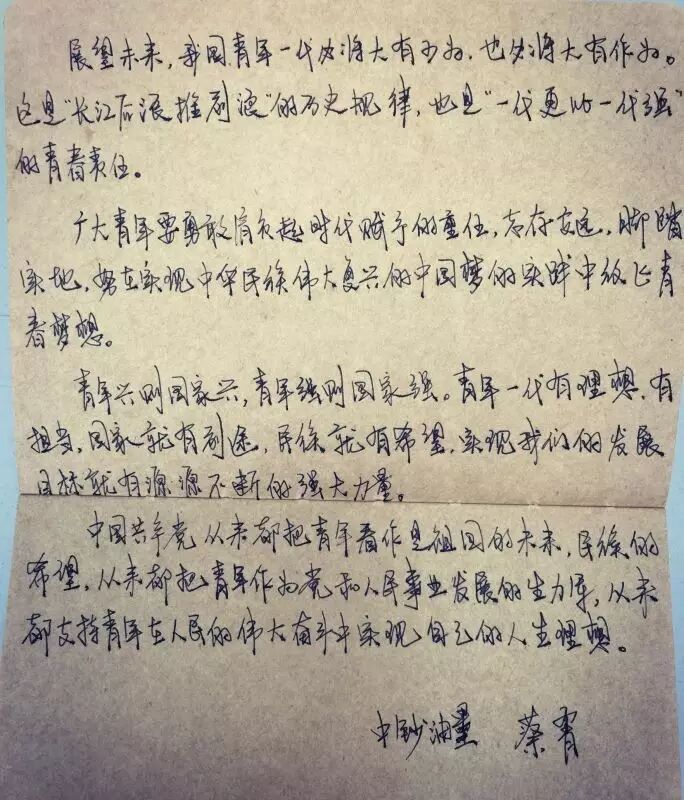 展望未来，我国青年一代必将大有可为，也必将大有作为。
这是“长江后浪推前浪”的历史规律，也是“一代更比一代强”
的青春责任。
广大青年要勇敢肩负起时代赋予的重任，志存高远，脚踏
实地，努在实现中华民族伟大复兴的中国梦的实践中放飞青
春梦想。
青年兴则国家兴，青年强则国家强。青年一代有理想、有
担当，国家就有前途，民族就有希望，实现我们的发展
目标就有源源不断的强大力量。
中国共产党从来都把青年看作是祖国的未来、民族的
希望，从来都把青年作为党和人民事业发展的生力军，从来
都支持青年在人民的伟大奋斗中实现自己的人生理想。
中钞油墨 蔡